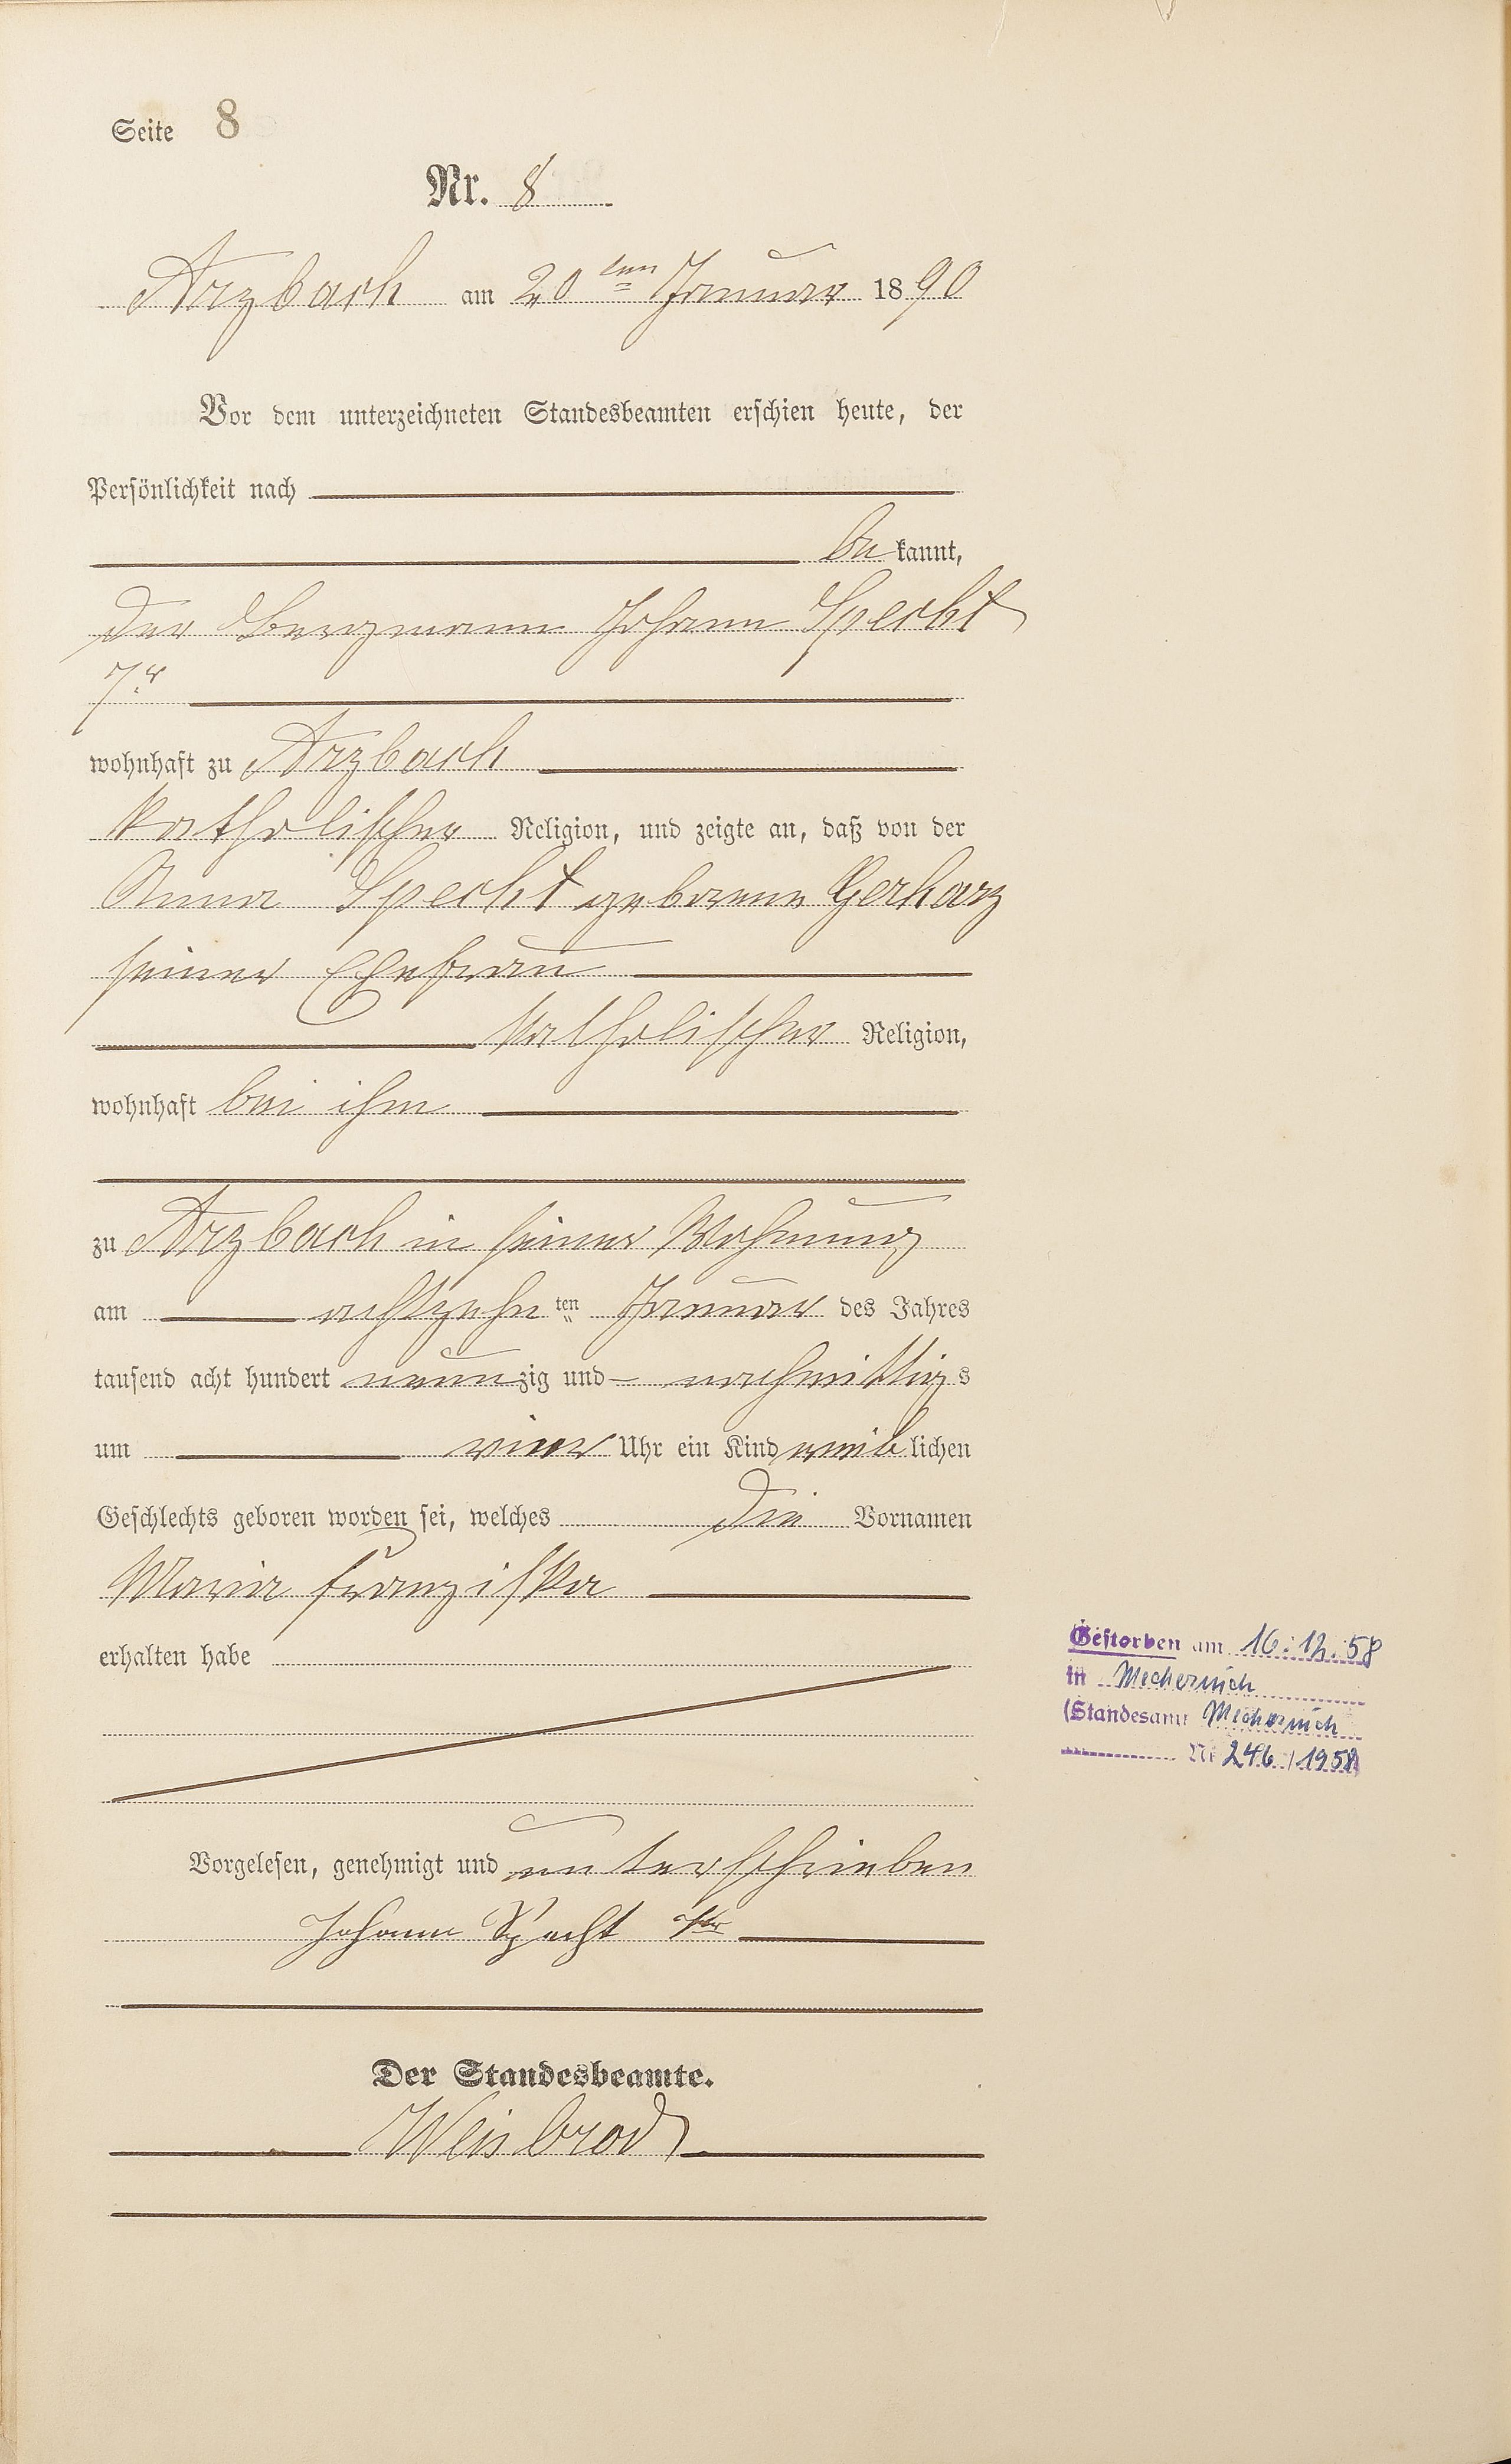 Seite 8
Nr. 8
Arzbach am 20ten Januar 1890
Vor dem unterzeichneten Standesbeamten erschien heute, der
Persönlichkeit nach
bekannt,
der Bergmann Johann Specht
7r
wohnhaft zu Arzbach
katholischer Religion, und zeigte an, daß von der
Anna Specht geborene Gerharz
seiner Ehefrau
katholischer Religion,
wohnhaft bei ihm
zu Arzbach in seiner Wohnung
am achtzehnten Januar des Jahres
tausend acht hundert neunzig und nachmittags
um vier Uhr ein Kind weiblichen
Geschlechts geboren worden sei, welches die Vornamen
Maria Franziska
erhalten habe
Vorgelesen, genehmigt und unterschrieben
Johann Specht 7tr
Der Standesbeamte.
Weisbrod
Gestorben am 16.12.58
in Mechernich
(Standesamt Mechernich
Nr 246/1958)